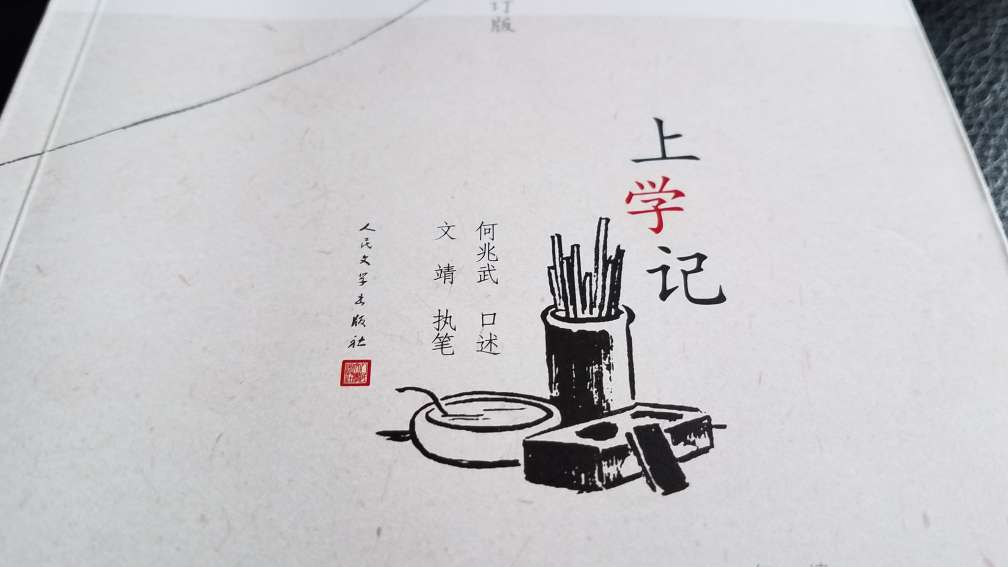 订版
上学记
何兆武 口述
文靖 执笔
人民文学出版社